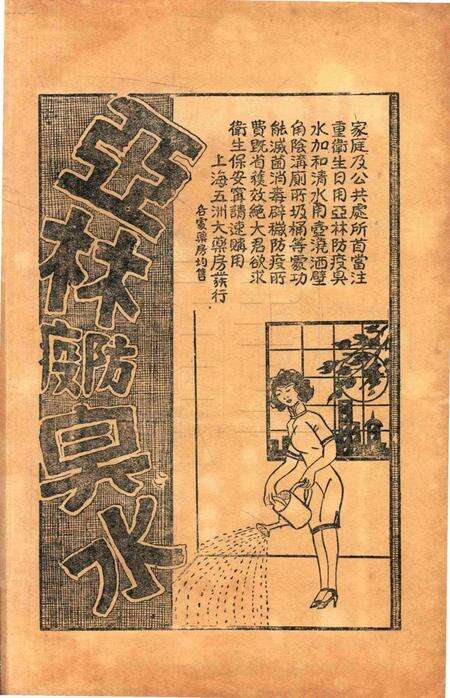 家庭及公共處所首當注
重衛生日用亞林防疫臭
水加和清水用壺澆洒壁
角陰溝厠所圾桶等處功
能滅菌消毒辟穢防疫所
費旣省穫效絕大君欲求
衛生保安寗請速購用
上海五洲大藥房發行
各處藥房均售
亞林防疫臭水